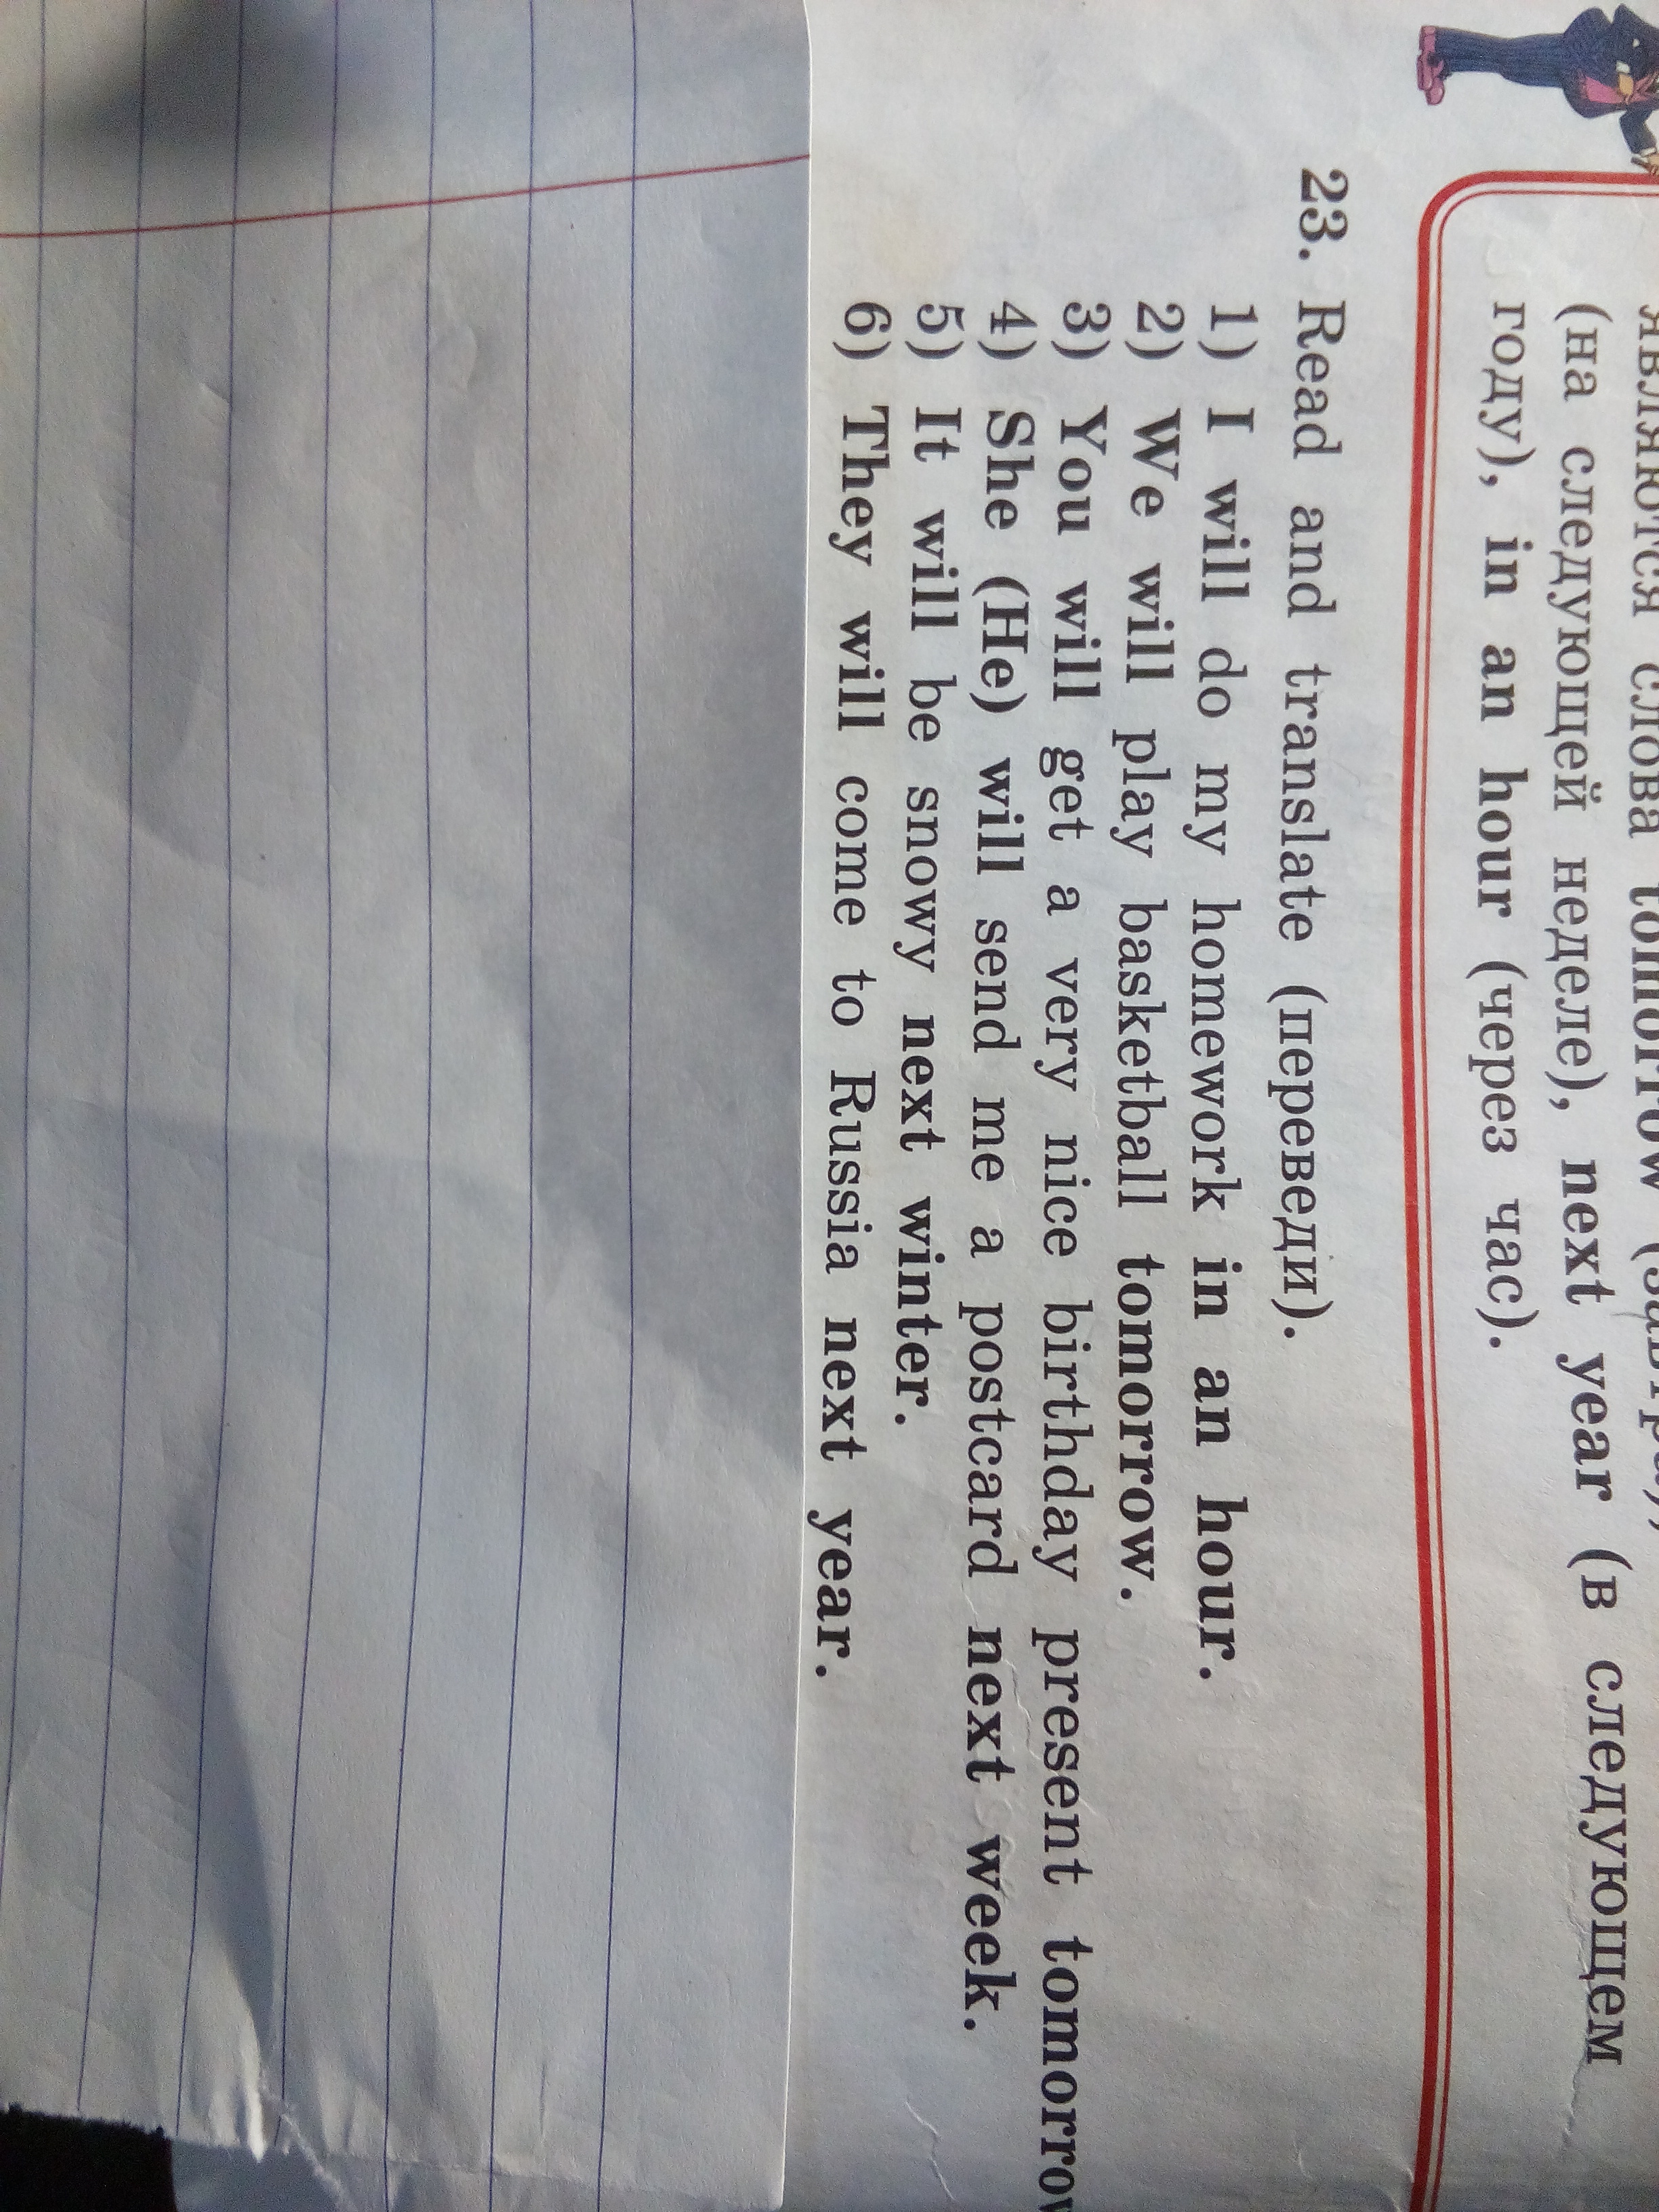 являются слова tomorrow (завтра),
(на следующей неделе), next year (в следующем
году), in an hour (через час).
23. Read and translate (переведи).
1) I will do my homework in an hour.
2) We will play basketball tomorrow.
3) You will get a very nice birthday present tomorrow
4) She (He) will send me a postcard next week.
5) It will be snowy next winter.
6) They will come to Russia next year.